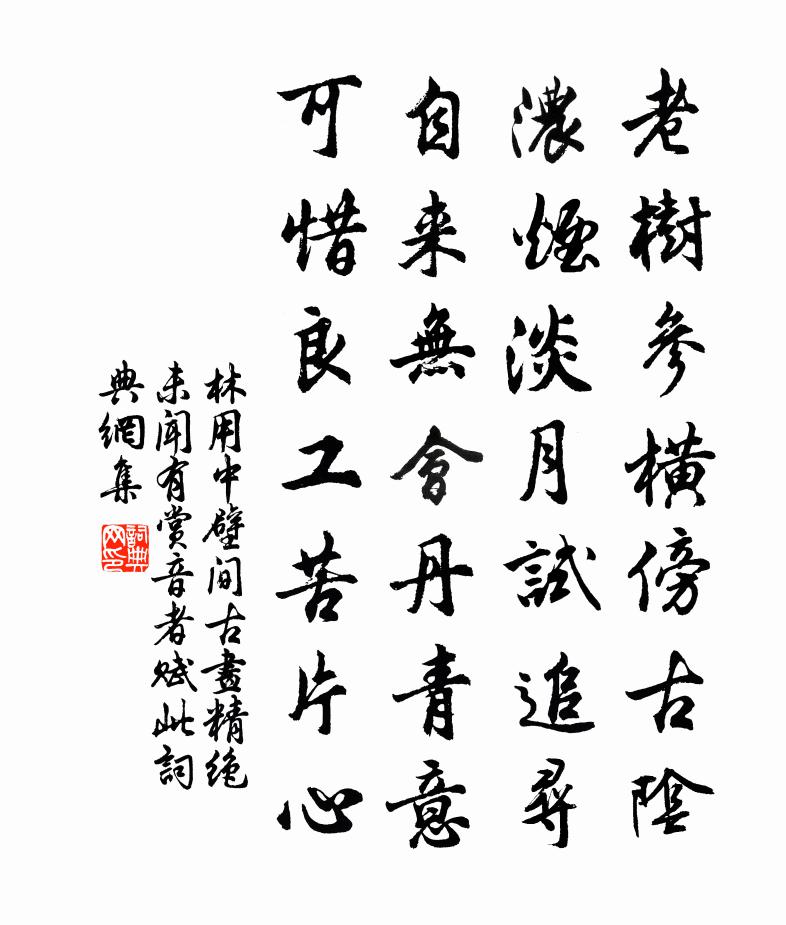 老樹參橫傍古陰
濃煙淡月試追尋
自来無會丹青意
可惜良工苦片心
林用中壁间古畫精绝
未闻有赏音者赋此詞
典網集
詞典
网印